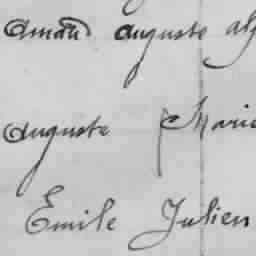 Amand auguste al
Auguste Marie
Emile Julien